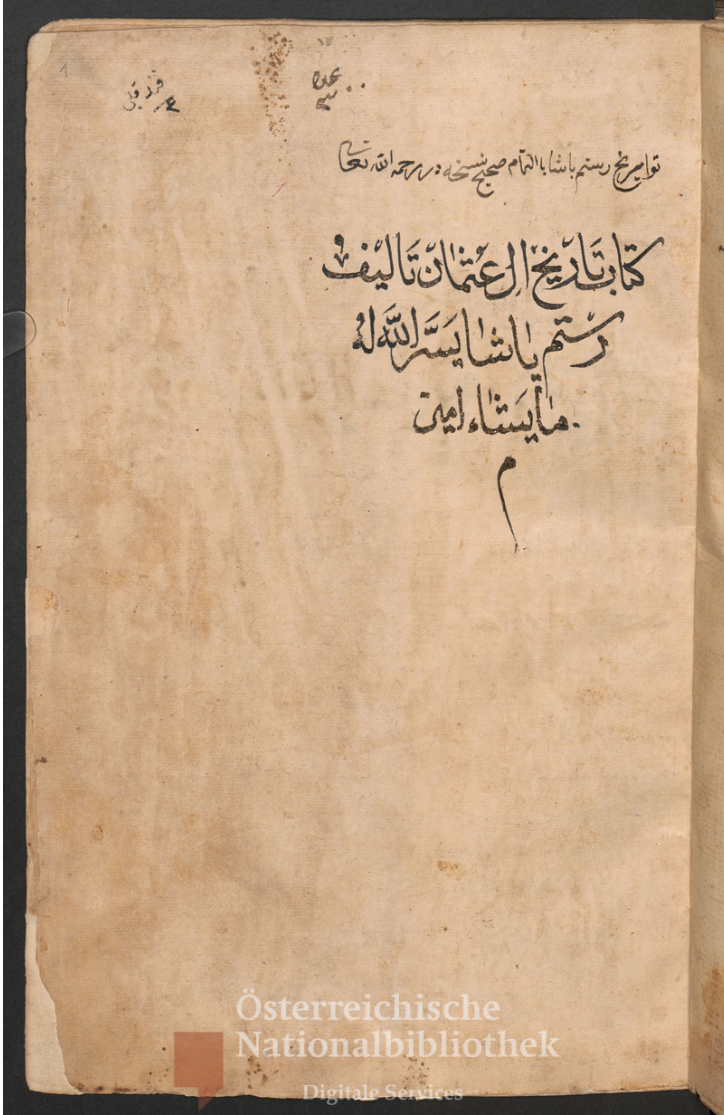 1
عدد
تواريخ رستم پاشا بالتمام صحيح نسخه در رحمه الله تعالى
كتاب تَاريخ ال عثمان تَاليف
رستم پاشا يَسَّر اللَّه لهُ
ما يَشاء امين
م
Österreichische
Nationalbibliothek
Digitale Services